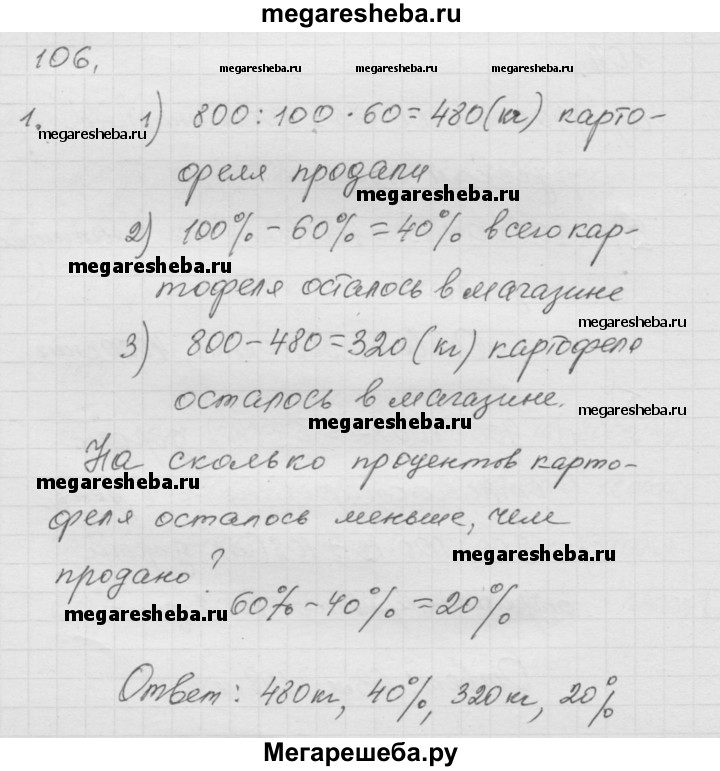 megaresheba.ru
106,
megaresheba.ru megaresheba.ru megaresheba.ru
1. 1) 800 : 100 · 60 = 480 (кг) карто-
megaresheba.ru
феля продали
megaresheba.ru
2) 100% - 60% = 40% всего кар-
megaresheba.ru
тофеля осталось в магазине
megaresheba.ru
3) 800 - 480 = 320 (кг) картофеля
осталось в магазине.
megaresheba.ru
megaresheba.ru
На сколько процентов карто-
megaresheba.ru
феля осталось меньше, чем
megaresheba.ru
продано?
60% - 40% = 20%
megaresheba.ru
Ответ: 480 кг, 40%, 320 кг, 20%
Мегарешеба.ру